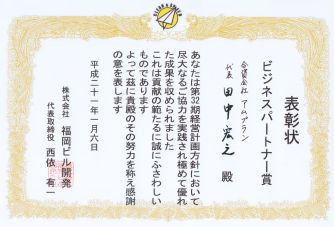 表彰状
ビジネスパートナー賞
合資会社 アムプラン
代表 田中宏之 殿
あなたは第32期経営計画方針において
尽大なるご協力を実践され極めて優れ
た成果を収められました
これは貢献の範たるに誠にふさわしい
ものであります
よって茲に貴殿のその努力を称え感謝
の意を表します
平成二十一年一月六日
株式会社 福岡ビル開発
代表取締役 西依 有一